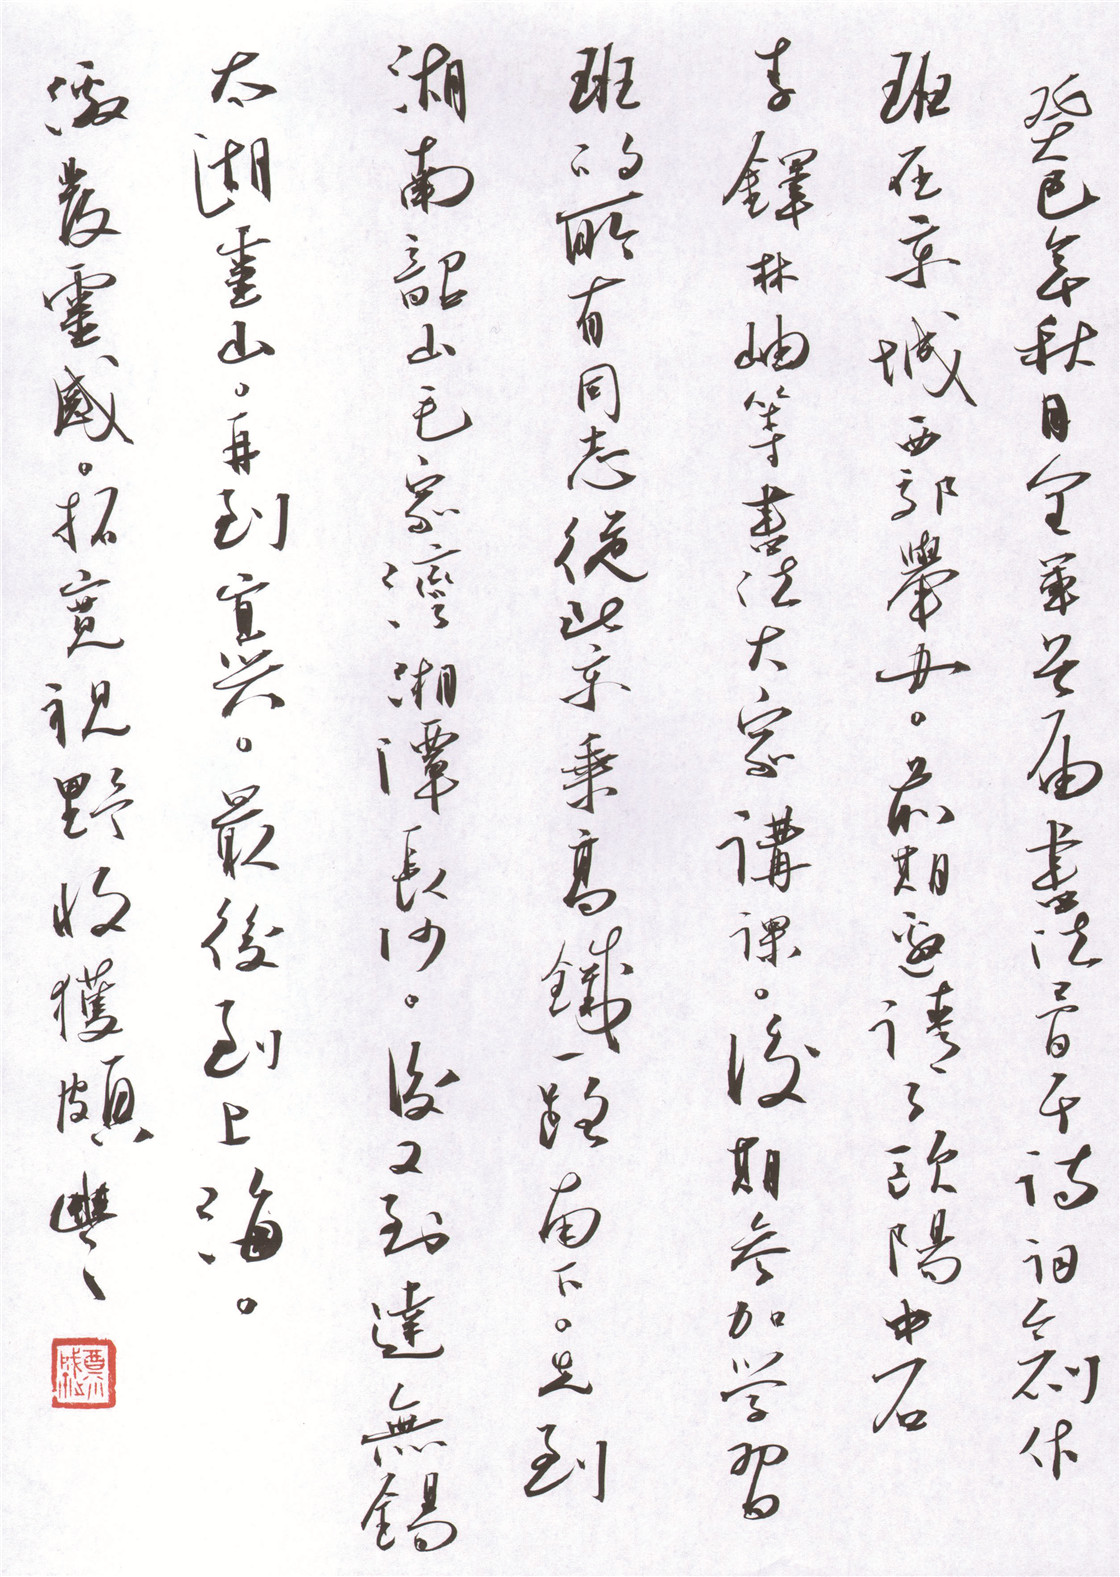 癸巳年秋月全軍首届書法骨干詩词创作
班在京城西郊舉办。前期邀請了歐陽中石
李鐸林岫等書法大家講課。後期参加学習
班的所有同志從北京乘高鐵一路南下。先到
湖南韶山毛家灣湘潭長沙。後又到達無錫
太湖靈山。再到宜兴。最後到上海。
激發靈感。拓寬視野收獲頗豐